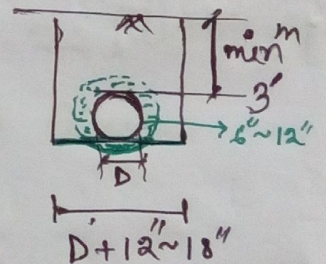 minᵐ
3'
6"~12"
D
D+12"~18"